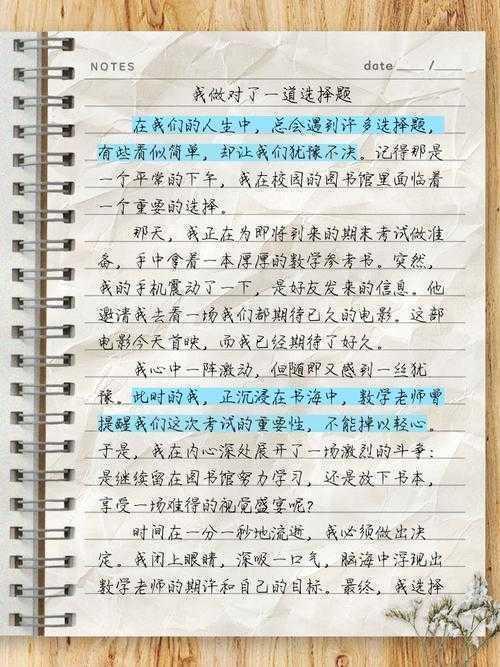 NOTES
date ____ /____
我做对了一道选择题
在我们的人生中，总会遇到许多选择题，
有些看似简单，却让我们犹豫不决。记得那是
一个平常的下午，我在校园的图书馆里面临着
一个重要的选择。
那天，我正在为即将到来的期末考试做准
备，手中拿着一本厚厚的数学参考书。突然，
我的手机震动了一下，是好友发来的信息。他
邀请我去看一场我们都期待已久的电影。这部
电影今天首映，而我已经期待了好久。
我心中一阵激动，但随即又感到一丝犹
豫。此时的我，正沉浸在书海中，数学老师曾
提醒我们这次考试的重要性，不能掉以轻心。
于是，我在内心深处展开了一场激烈的斗争：
是继续留在图书馆努力学习，还是放下书本，
享受一场难得的视觉盛宴呢？
时间在一分一秒地流逝，我必须做出决
定。我闭上眼睛，深吸一口气，脑海中浮现出
数学老师的期许和自己的目标。最终，我选择